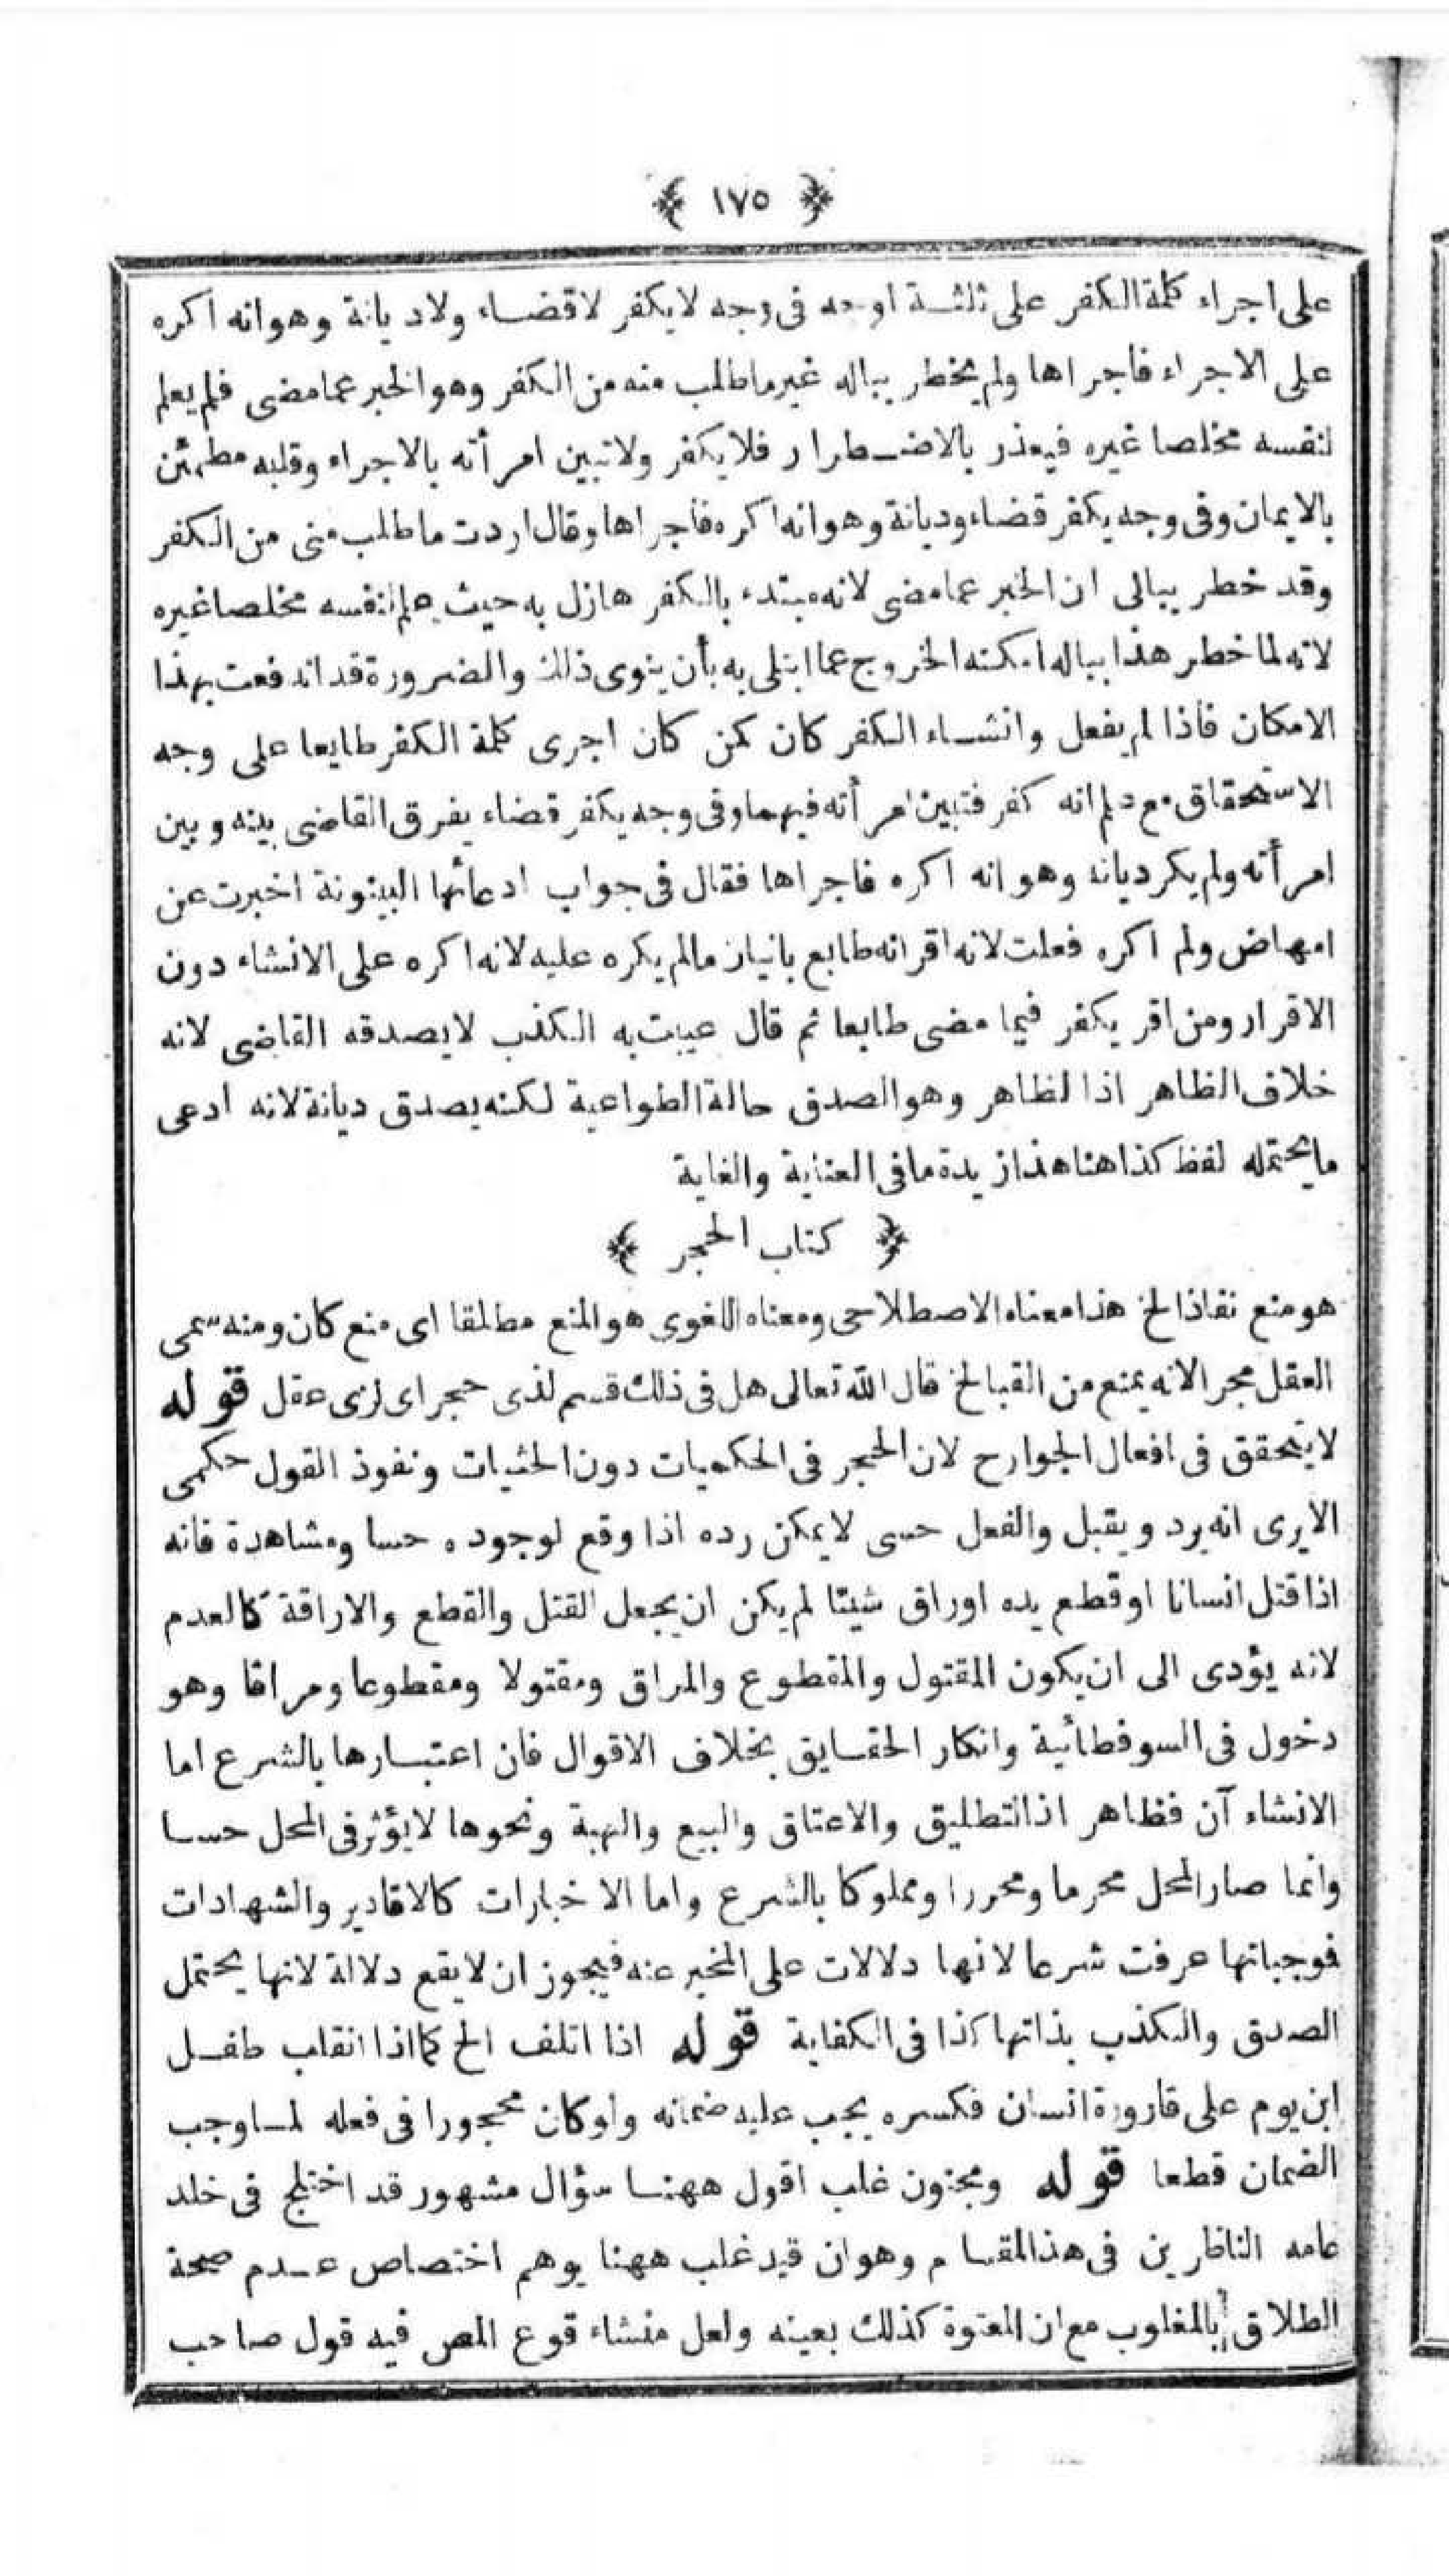 ﴿ ١٧٥ ﴾
على اجراء كلمة الكفر على ثلثة اوجه فى وجه لا يكفر لا قضاء ولا ديانة وهو انه اكره
على الاجراء فأجراها ولم يخطر بباله غير ما طلب منه من الكفر وهو الخبر عما مضى فلم يعلم
لنفسه مخلصا غيره فيعذر بالاضطرار فلا يكفر ولا تبين امرأته بالاجراء وقلبه مطمئن
بالايمان وفى وجه يكفر قضاء وديانة وهو انه اكره فأجراها وقال اردت ما طلب منى من الكفر
وقد خطر ببالى ان الخبر عما مضى لانه مبتدء بالكفر هازل به حيث علم لنفسه مخلصا غيره
لانه لما خطر هذا بباله امكنه الخروج عما ابتلى به بأن ينوى ذلك والضرورة قد اندفعت بهذا
الامكان فاذا لم يفعل وانشاء الكفر كان كمن كان اجرى كلمة الكفر طايعا على وجه
الاستحقاق مع علم انه كفر فتبين امرأته فيهما وفى وجه يكفر قضاء يفرق القاضى بينه وبين
امرأته ولم يكر ديانه وهو انه اكره فاجراها فقال فى جواب ادعائها البينونة اخبرت عن
امهاض ولم اكره فعلت لانه اقر انه طايع باتيان ما لم يكره عليه لانه اكره على الانشاء دون
الاقرار ومن اقر يكفر فيما مضى طايعا ثم قال عيبت به الكذب لا يصدقه القاضى لانه
خلاف الظاهر اذا لظاهر وهو الصدق حالة الطواعية لكنه يصدق ديانة لانه ادعى
ما يحتمله لفظ كذا هنا هذا زيدة ما فى العناية والغاية
﴿ كتاب الحجر ﴾
هو منع نفاذ الخ هذا معناه الاصطلاحى ومعناه اللغوى هو المنع مطلقا اى منع كان ومنه سمى
العقل محجرا لانه يمنع من القبالخ قال الله تعالى هل فى ذلك قسم لذى حجر اى لزى عقل قوله
لا يتحقق فى افعال الجوارح لان الحجر فى الحكميات دون الحثيات ونفوذ القول حكمى
الايرى انه يرد ويقبل والفعل حسى لا يمكن رده اذا وقع لوجوده حسا ومشاهدة فانه
اذا قتل انسانا او قطع يده اوراق شيئا لم يكن ان يجعل القتل والقطع والاراقة كالعدم
لانه يؤدى الى ان يكون المقتول والمقطوع والمراق ومقتولا ومقطوعا ومراقا وهو
دخول فى السوفطائية وانكار الحقايق بخلاف الاقوال فان اعتبارها بالشرع اما
الانشاء آن فظاهر اذا التطليق والاعتاق والبيع والهبة ونحوها لا يؤثر فى المحل حسا
وانما صار المحل محرما ومحررا ومملوكا بالشرع واما الاخبارات كالاقادير والشهادات
فوجباتها عرفت شرعا لانها دلالات على المخبر عنه فيجوز ان لا يقع دلالة لانها يحتمل
الصدق والكذب بذاتها كذا فى الكفاية قوله اذا اتلف الخ كما اذا انقلب طفل
ابن يوم على قارورة انسان فكسره يجب عليه ضمانه ولو كان محجورا فى فعله لما وجب
الضمان قطعا قوله ومجنون غلب اقول ههنا سؤال مشهور قد اختلج فى خلد
عامه الناظرين فى هذا المقام وهو ان قيد غلب ههنا يوهم اختصاص عدم صحة
الطلاق بالمغلوب مع ان المعتوة كذلك بعينه ولعل منشاء قوع المص فيه قول صاحب